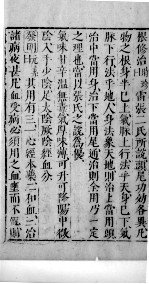 根修治時珍雷張二氏所說頭尾功効各異凡
物之根身半已上氣脈上行法乎天身半已下氣
脈下行法乎地人身法象天地則治上當用頭
治中當用身治下當用尾通治則全用乃一定
之理也當以張氏之說為優
氣味甘辛溫無毒氣厚味薄可升可降陽中微
陰入手少陰足太陰厥陰經血分
發明元素其用有三一心經本藥二和血三治
諸病夜甚凡血受病必須用之血壅而不流則